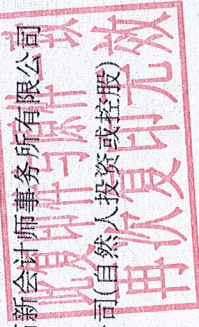 新会计师事务所有限公司
司(自然人投资或控股)
此复印件与原件一致
再次复印无效